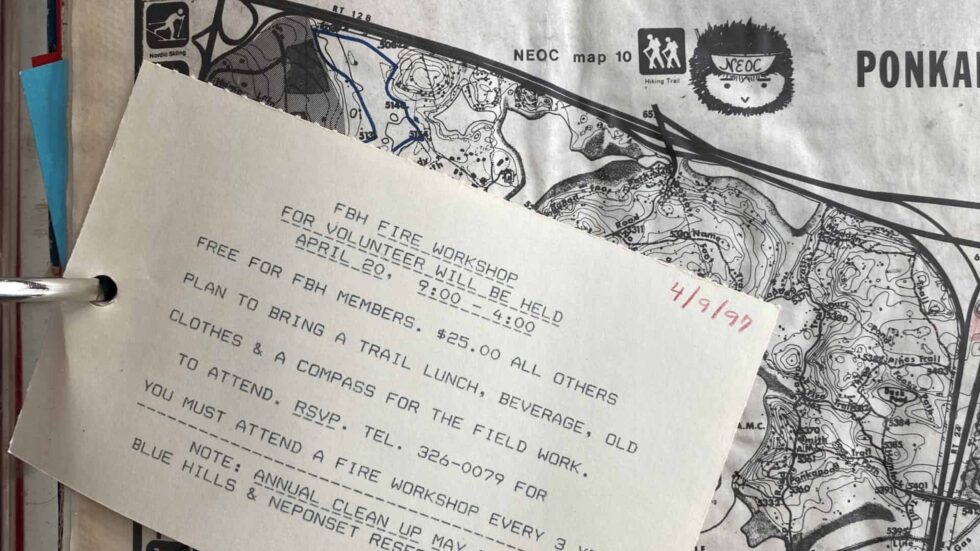 RT 128
Nordic Skiing
NEOC map 10
Hiking Trail
NEOC
PONKA
5140
Road
5311
5380
Trail
5384
A.M.C.
5385
Ponkapoag
Trail
5401
4/9/97
FBH FIRE WORKSHOP
FOR VOLUNTEER WILL BE HELD
APRIL 20, 9:00 - 4:00
FREE FOR FBH MEMBERS. $25.00 ALL OTHERS
PLAN TO BRING A TRAIL LUNCH, BEVERAGE, OLD
CLOTHES & A COMPASS FOR THE FIELD WORK.
TO ATTEND. RSVP. TEL. 326-0079 FOR
YOU MUST ATTEND A FIRE WORKSHOP EVERY 3 Y
NOTE: ANNUAL CLEAN UP MAY
BLUE HILLS & NEPONSET RESE